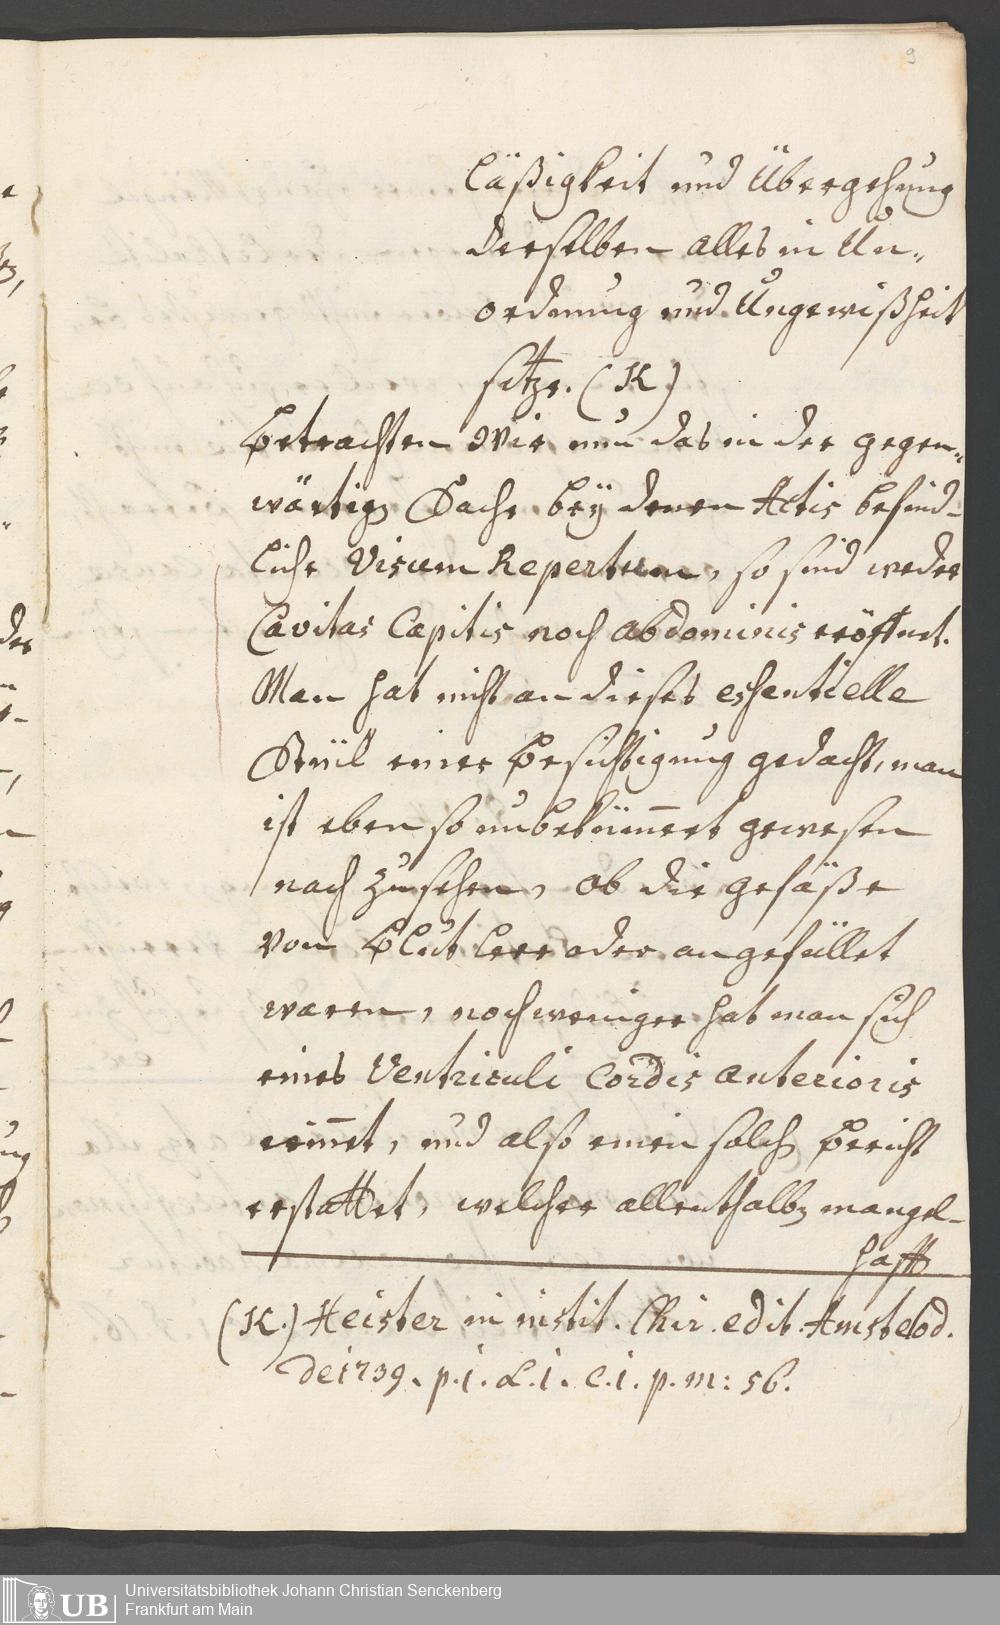 9
läßigkeit und Übergehung
derselben alles in Un„
ordnung und Ungewißheit
setze. (K)
Betrachten Wir nun das in der gegen„
wärtigen Sache bey denen Actis befind-
liche Visum Repertum, so sind weder
Cavitas Capitis noch abdominis eröffnet.
Man hat nicht an dieses eshentielle
Stück einer Besichtigung gedacht, man
ist eben so unbekümmert gewesen
nach zusehen, ob die gefäße
von Blut leer oder angefüllet
waren, noch weniger hat man sich
eines Ventriculi Cordis anterioris
erinnert, und also einen solchen Bericht
erstattet, welcher allenthalben mangel-
hafft
(K.) Heister in instit. Chir. edit. Amstelod.
de 1739. p. i. L. i. C. i. p. m: 56.
UB Universitätsbibliothek Johann Christian Senckenberg
Frankfurt am Main